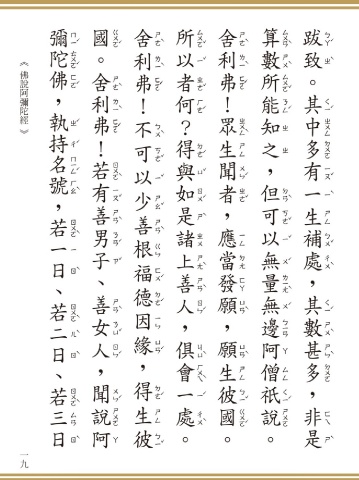 跋致。其中多有一生補處，其數甚多，非是
算數所能知之，但可以無量無邊阿僧祇說。
舍利弗！眾生聞者，應當發願，願生彼國。
所以者何？得與如是諸上善人，俱會一處。
舍利弗！不可以少善根福德因緣，得生彼
國。舍利弗！若有善男子、善女人，聞說阿
彌陀佛，執持名號，若一日、若二日、若三日
《佛說阿彌陀經》
一九